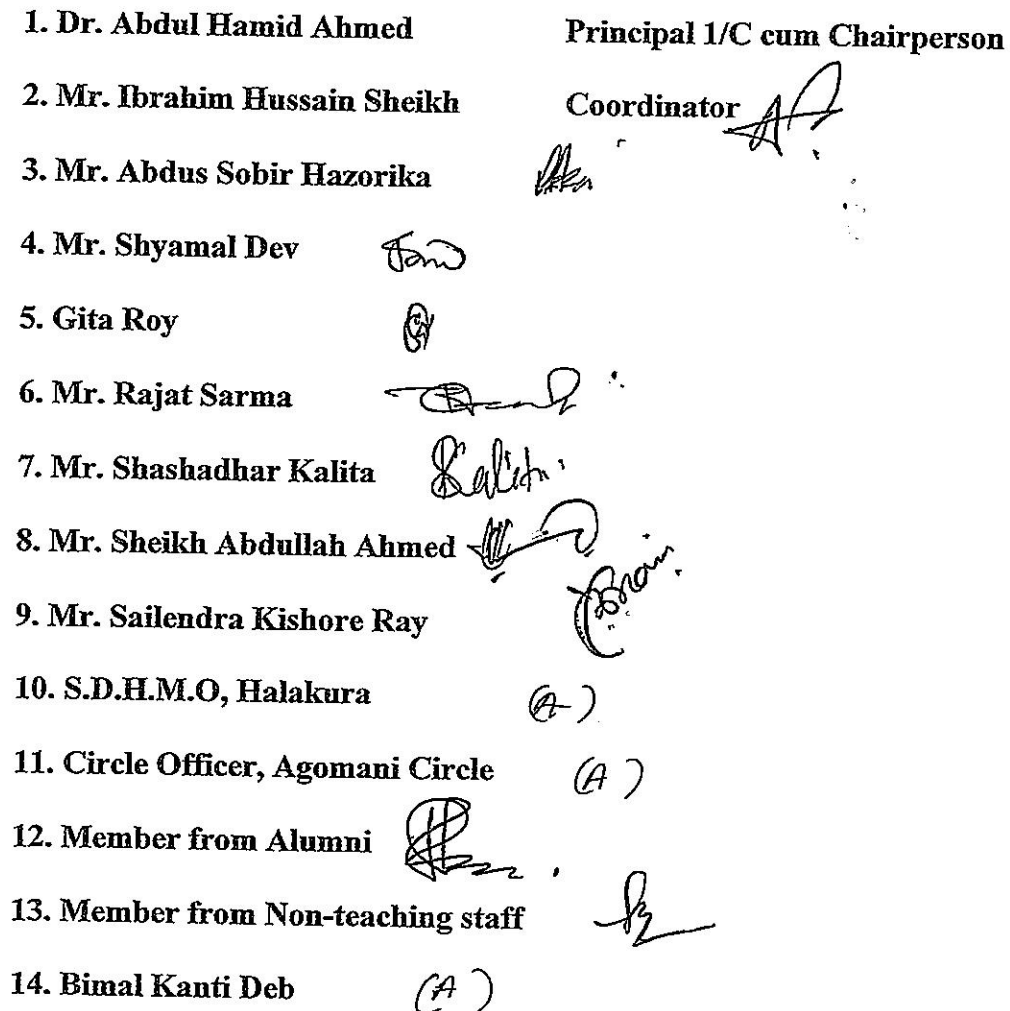 1. Dr. Abdul Hamid Ahmed Principal 1/C cum Chairperson
2. Mr. Ibrahim Hussain Sheikh Coordinator
3. Mr. Abdus Sobir Hazorika
4. Mr. Shyamal Dev
5. Gita Roy
6. Mr. Rajat Sarma
7. Mr. Shashadhar Kalita Kalita
8. Mr. Sheikh Abdullah Ahmed
9. Mr. Sailendra Kishore Ray
10. S.D.H.M.O, Halakura (A)
11. Circle Officer, Agomani Circle (A)
12. Member from Alumni
13. Member from Non-teaching staff
14. Bimal Kanti Deb (A)